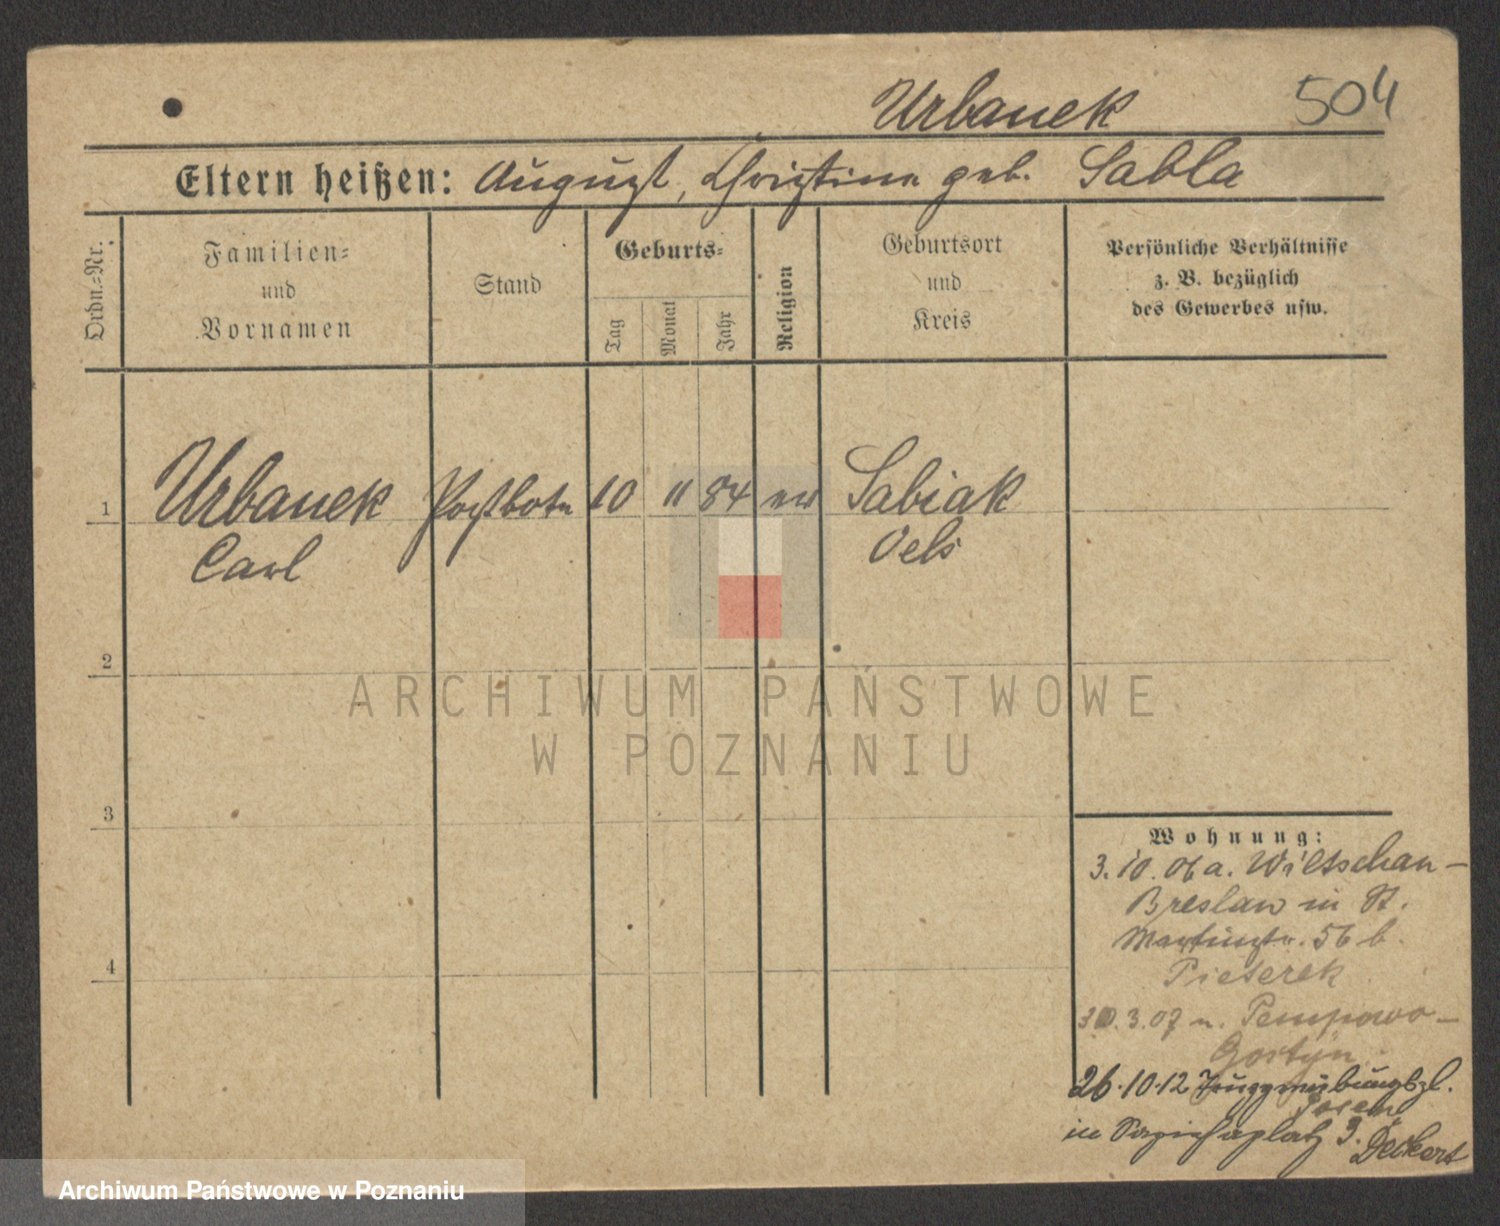 Urbanek 504
Eltern heißen: August, Christine geb. Sabla
Ordn.-Nr.
Familien-
und
Vornamen
Stand
Geburts-
Tag
Monat
Jahr
Religion
Geburtsort
und
Kreis
Persönliche Verhältnisse
z. B. bezüglich
des Gewerbes usw.
1 Urbanek Postbote 10 11 84 ev Sabiak
Carl Oels
2
3
4
ARCHIWUM PAŃSTWOWE
W POZNANIU
Wohnung:
3. 10. 06 a. Wiltschau-
Breslau in St.
Martinstr. 56 b.
Pieterek
30.3.07 n. Pempowo-
Gostyn
26.10.12 Truppenübungspl.
Posen
in Sapiehaplatz 3.
Deckert
Archiwum Państwowe w Poznaniu